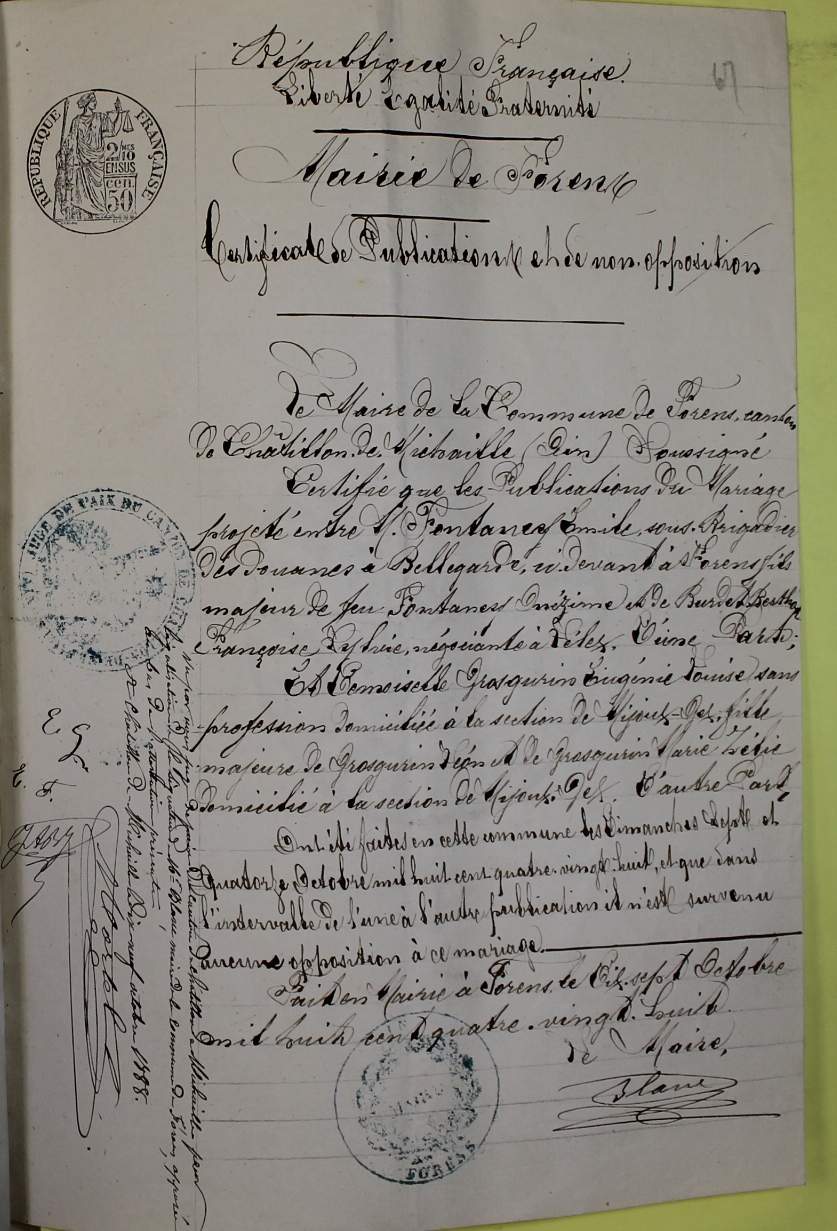 République Française.
Liberté Egalité Fraternité
67
RÉPUBLIQUE FRANÇAISE
2/10
EN SUS
50
Mairie de Forens
Certificat de Publications et de non-opposition
Le Maire de la Commune de Forens, canton
de Châtillon-de-Michaille (Ain) Soussigné
Certifie que les Publications du Mariage
projeté entre M. Fontanez Emile, sous-Brigadier
des Douanes à Bellegarde, ci-devant à Forens, fils
majeur de feu Fontanez Onézime et de Burdet Berthe
Françoise Sylvie, négociante à Lélex. D'une Part;
Et Demoiselle Grosgurin Eugénie Louise sans
profession domiciliée à la section de Mijoux-Gex, fille
majeure de Grosgurin Léon et de Grosgurin Marie Zélie
domicilié à la section de Mijoux-Gex. D'autre Part,
Ont été faites en cette commune les Dimanches Sept et
quatorze Octobre mil huit cent quatre-vingt-huit, et que dans
l'intervalle de l'une à l'autre publication il n'est survenu
aucune opposition à ce mariage.
Fait en Mairie à Forens, le Dix-sept Octobre
mil huit cent quatre-vingt-huit.
Le Maire,
Blanc
MAIRIE
FORENS
DE PAIX DU CANTON DE
Vu par nous, juge de paix du canton de Châtillon de Michaille pour
légalisation de la signature de Mr Blanc maire de la commune de Forens, apposée
au bas de
à Châtillon de Michaille, dix neuf octobre 1888.
E G
E. F.